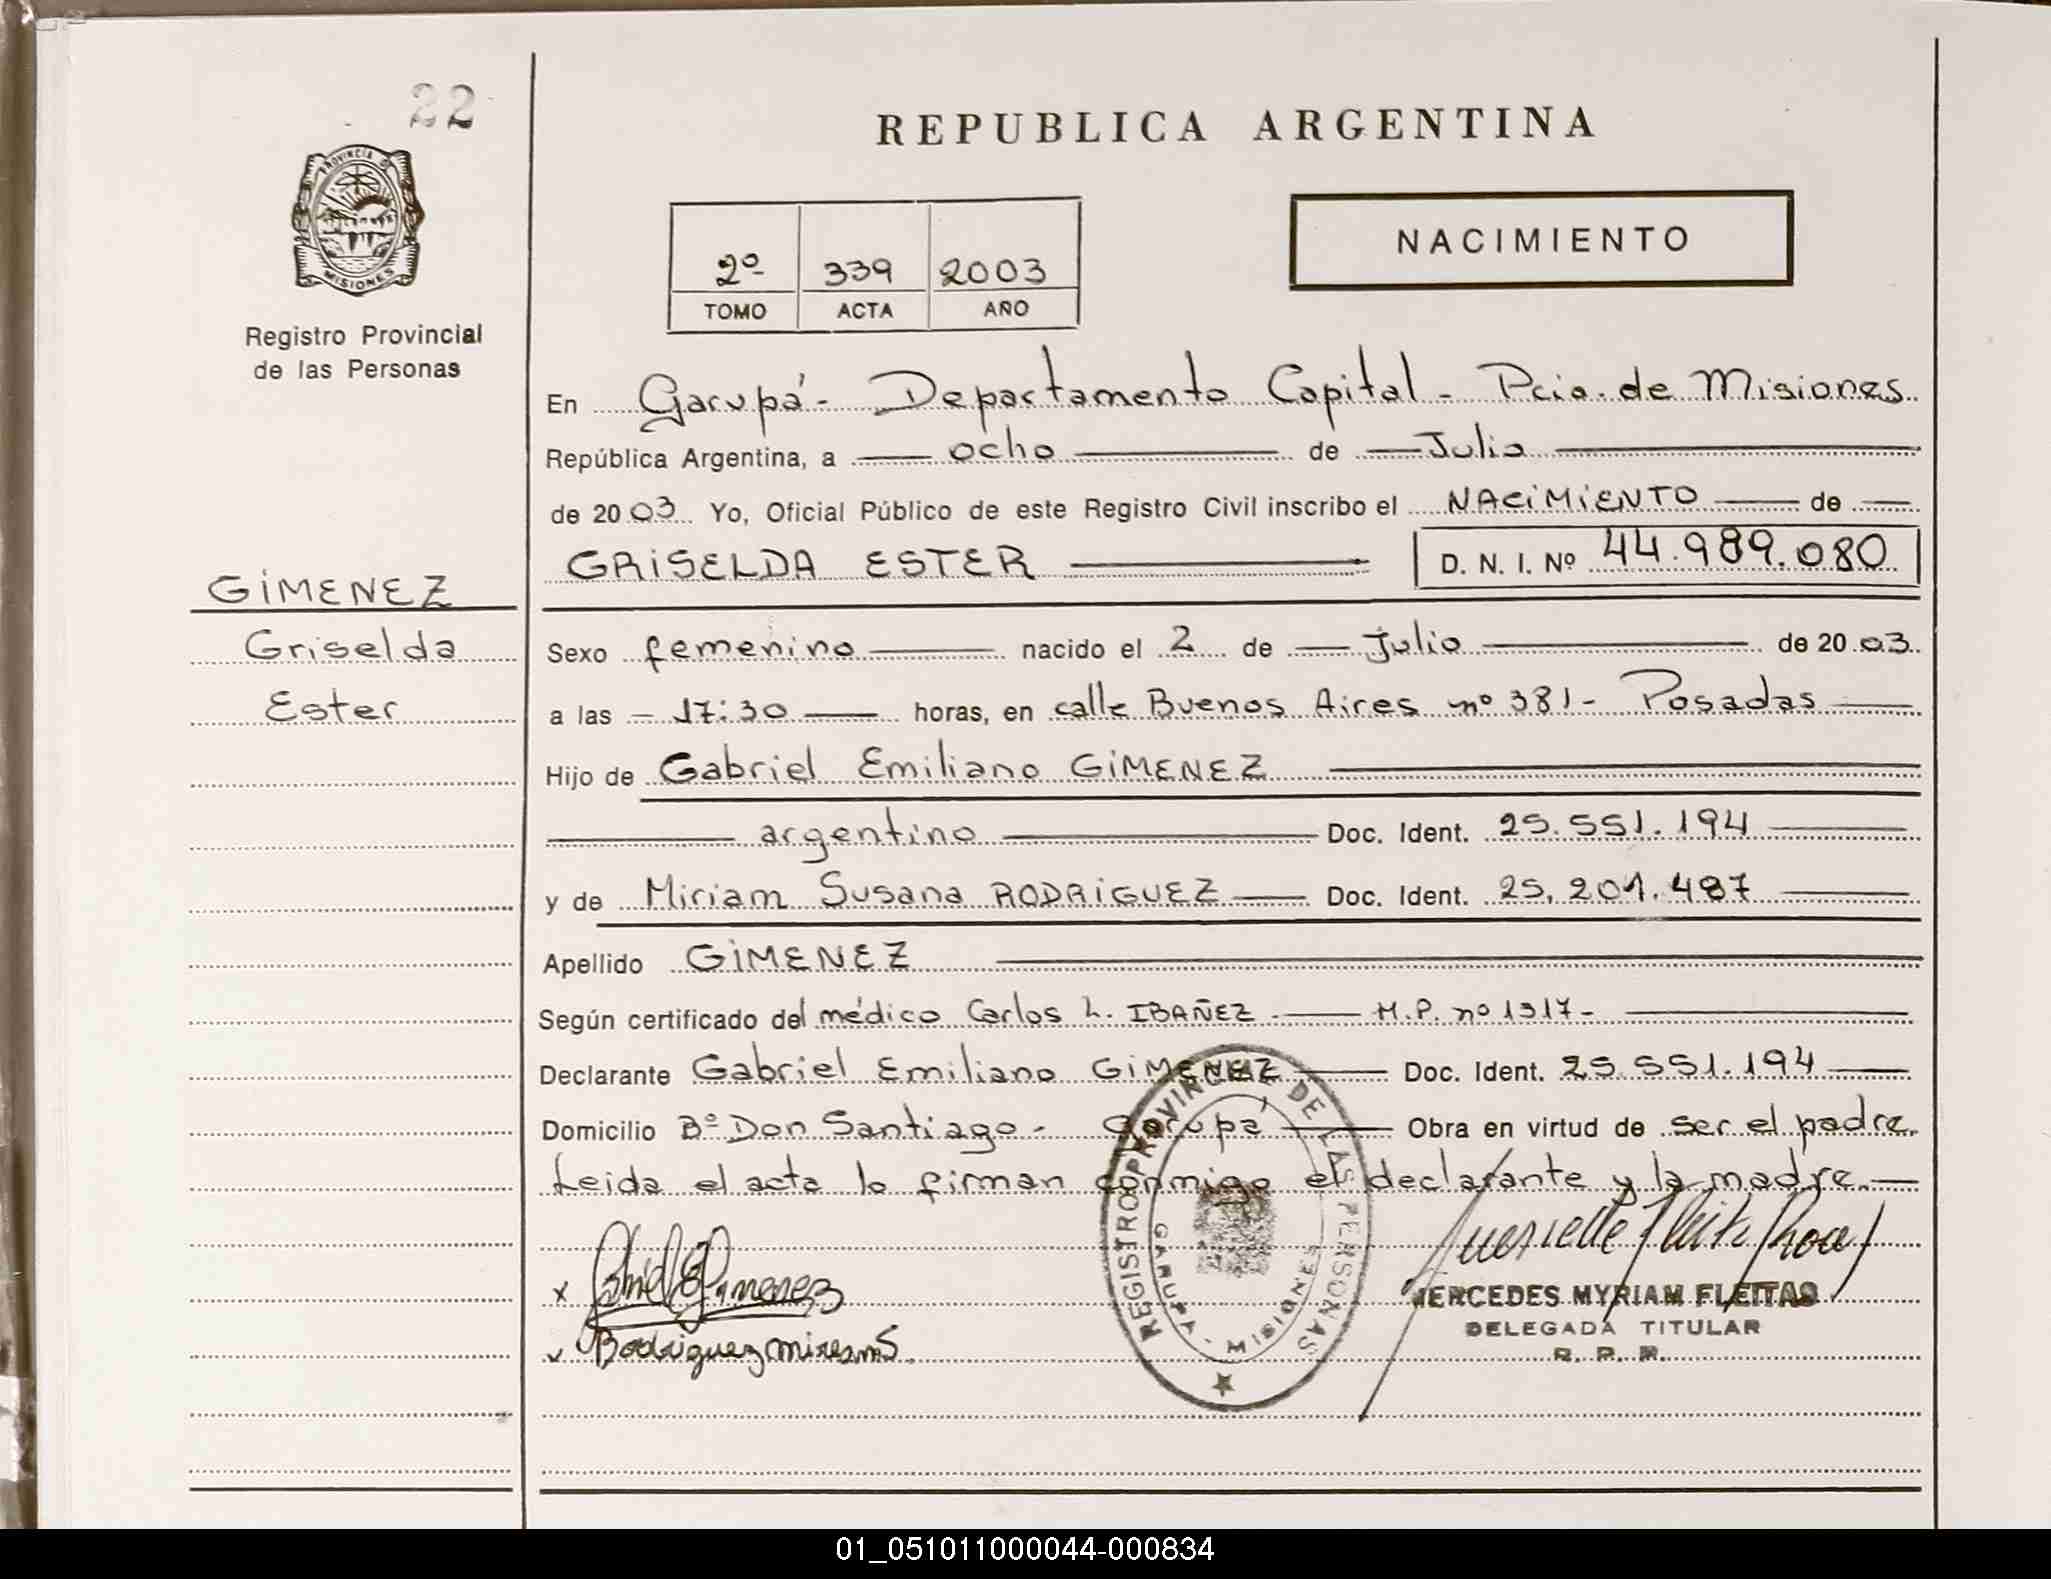 22
PROVINCIA DE
MISIONES
Registro Provincial
de las Personas
GIMENEZ
Griselda
Ester
REPUBLICA ARGENTINA
2º 339 2003
TOMO ACTA AÑO
NACIMIENTO
En Garupá - Departamento Capital - Pcia. de Misiones
República Argentina, a ocho de Julio
de 2003 Yo, Oficial Público de este Registro Civil inscribo el NACIMIENTO de
GRISELDA ESTER D. N. I. Nº 44.989.080
Sexo femenino nacido el 2 de Julio de 2003
a las - 17:30 horas, en calle Buenos Aires nº 381 - Posadas
Hijo de Gabriel Emiliano GIMENEZ
argentino Doc. Ident. 25.551.194
y de Miriam Susana RODRIGUEZ Doc. Ident. 25.201.487
Apellido GIMENEZ
Según certificado del médico Carlos L. IBAÑEZ - M.P. nº 1317 -
Declarante Gabriel Emiliano GIMENEZ Doc. Ident. 25.551.194
Domicilio Bº Don Santiago - Garupá Obra en virtud de ser el padre.
Leida el acta lo firman conmigo el declarante y la madre.
REGISTRO PROVINCIAL DE LAS PERSONAS
GARUPA - MISIONES
x Gabriel E Gimenez
Rodriguez Miriam S.
MERCEDES MYRIAM FLEITAS
DELEGADA TITULAR
R. P. P.
01_051011000044-000834